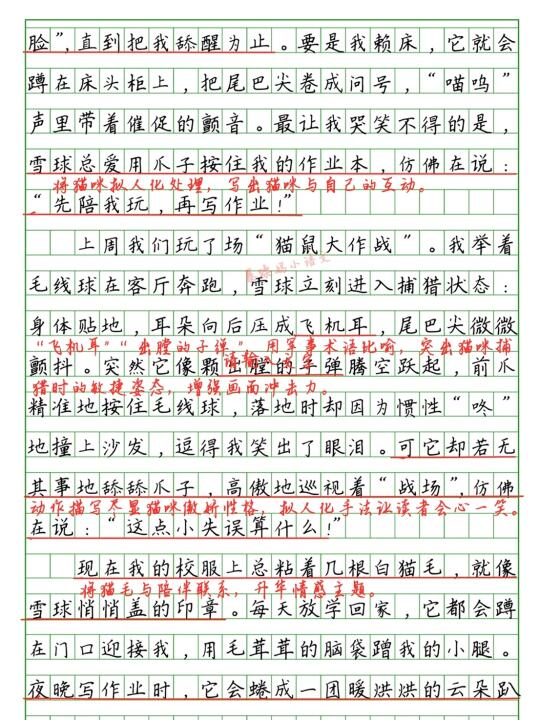 脸”,直到把我舔醒为止。要是我赖床,它就会
蹲在床头柜上,把尾巴尖卷成问号,“喵呜”
声里带着催促的颤音。最让我哭笑不得的是,
雪球总爱用爪子按住我的作业本,仿佛在说:
将猫咪拟人化处理,写出猫咪与自己的互动。
“先陪我玩,再写作业!”
上周我们玩了场“猫鼠大作战”。我举着
毛线球在客厅奔跑,雪球立刻进入捕猎状态:
身体贴地,耳朵向后压成飞机耳,尾巴尖微微
“飞机耳”“出膛的子弹”用军事术语比喻,突出猫咪捕
颤抖。突然它像颗出膛的子弹腾空跃起,前爪
猎时的敏捷姿态,增强画面冲击力。
精准地按住毛线球,落地时却因为惯性“咚”
地撞上沙发,逗得我笑出了眼泪。可它却若无
其事地舔舔爪子,高傲地巡视着“战场”,仿佛
动作描写尽显猫咪傲娇性格,拟人化手法让读者会心一笑。
在说:“这点小失误算什么!”
现在我的校服上总粘着几根白猫毛,就像
将猫毛与陪伴联系,升华情感主题。
雪球悄悄盖的印章。每天放学回家,它都会蹲
在门口迎接我,用毛茸茸的脑袋蹭我的小腿。
夜晚写作业时,它会蜷成一团暖烘烘的云朵趴